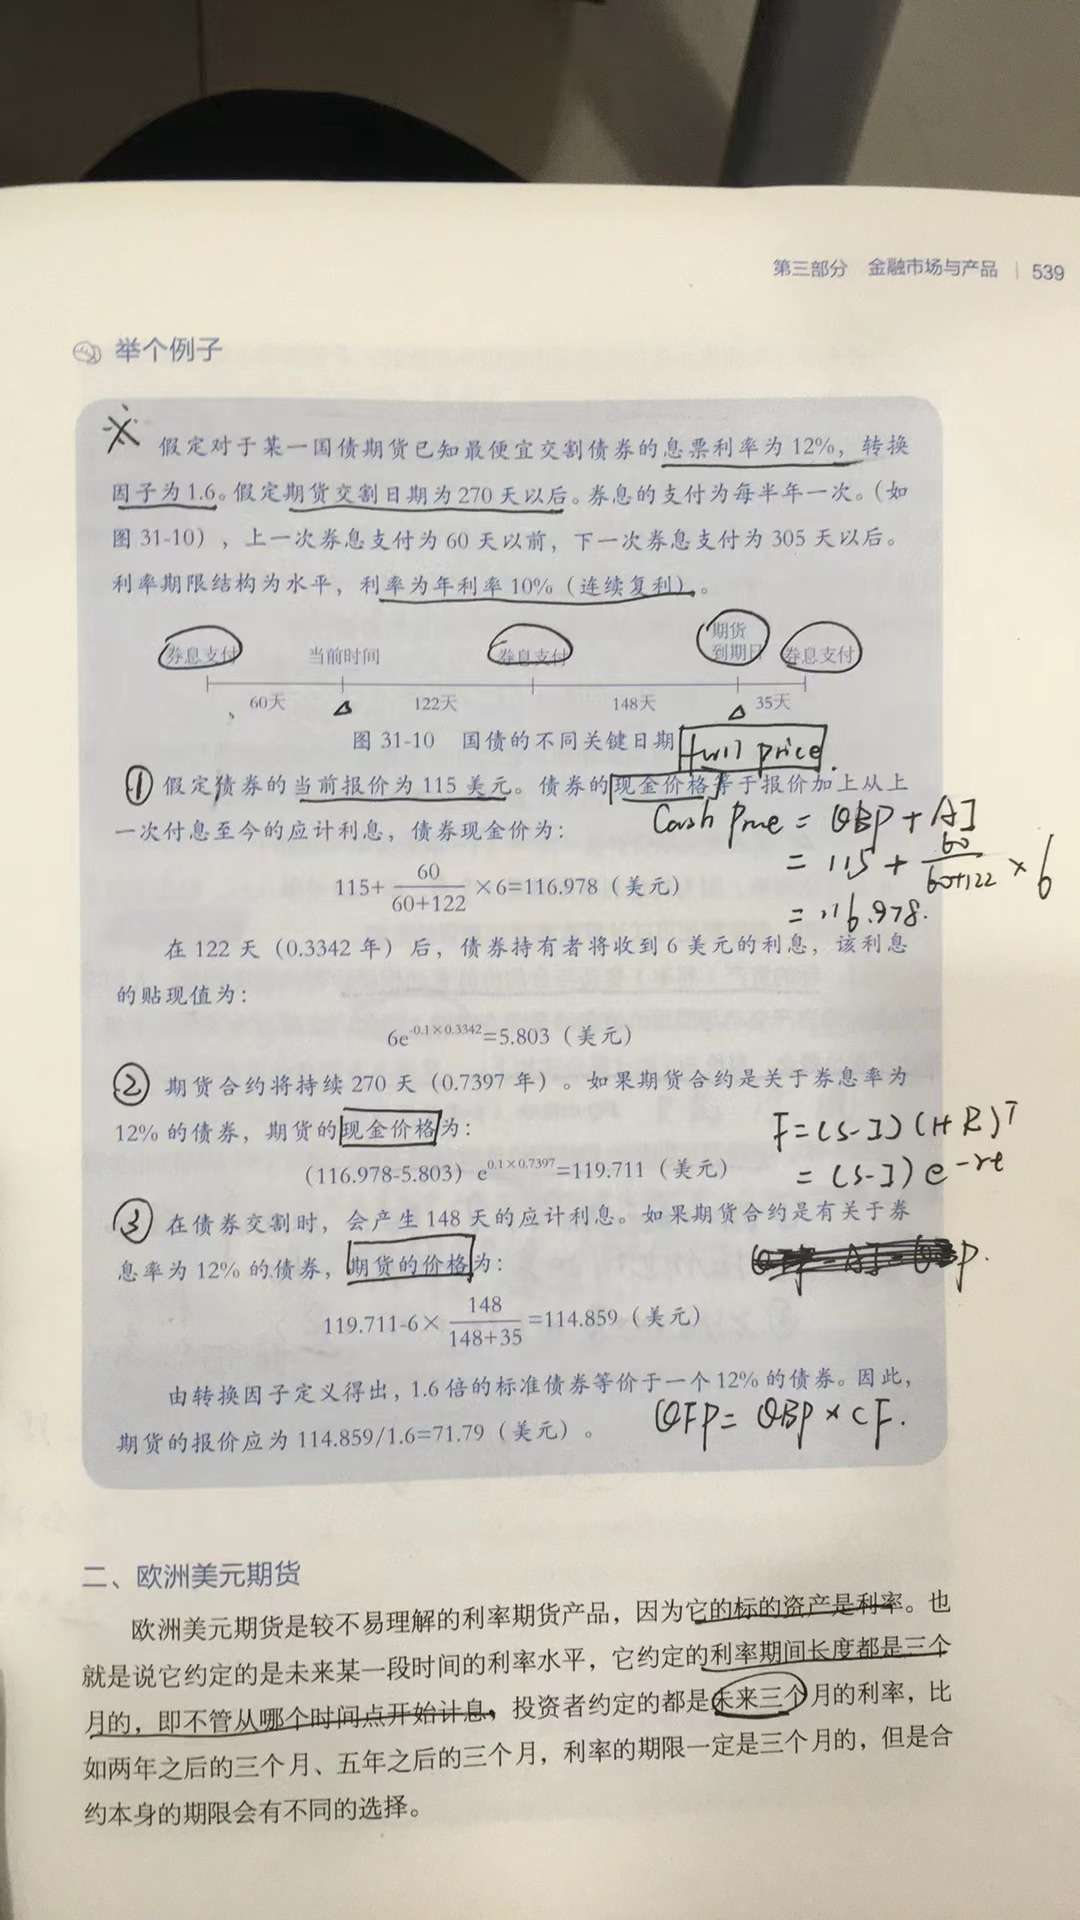 第三部分 金融市场与产品 | 539
举个例子
假定对于某一国债期货已知最便宜交割债券的息票利率为12%，转换
因子为1.6。假定期货交割日期为270天以后。券息的支付为每半年一次。（如
图31-10），上一次券息支付为60天以前，下一次券息支付为305天以后。
利率期限结构为水平，利率为年利率10%（连续复利）。
券息支付 当前时间 券息支付 期货到期日 券息支付
60天 122天 148天 35天
图 31-10 国债的不同关键日期
full price
① 假定债券的当前报价为115美元。债券的现金价格等于报价加上从上
一次付息至今的应计利息，债券现金价为：
Cash Price = QBP + AI
115+ 60/(60+122) ×6=116.978（美元）
= 115 + 60/(60+122) × 6
= 116.978.
在122天（0.3342年）后，债券持有者将收到6美元的利息，该利息
的贴现值为：
6e^-0.1×0.3342=5.803（美元）
② 期货合约将持续270天（0.7397年）。如果期货合约是关于券息率为
12%的债券，期货的现金价格为：
F=(S-I)(1+R)^T
(116.978-5.803) e^0.1×0.7397=119.711（美元）
= (S-I) e^-rt
③ 在债券交割时，会产生148天的应计利息。如果期货合约是有关于券
息率为12%的债券，期货的价格为：
119.711-6× 148/(148+35) =114.859（美元）
由转换因子定义得出，1.6倍的标准债券等价于一个12%的债券。因此，
期货的报价应为114.859/1.6=71.79（美元）。
QFP = QBP × CF.
二、欧洲美元期货
欧洲美元期货是较不易理解的利率期货产品，因为它的标的资产是利率。也
就是说它约定的是未来某一段时间的利率水平，它约定的利率期间长度都是三个
月的，即不管从哪个时间点开始计息，投资者约定的都是未来三个月的利率，比
如两年之后的三个月、五年之后的三个月，利率的期限一定是三个月的，但是合
约本身的期限会有不同的选择。